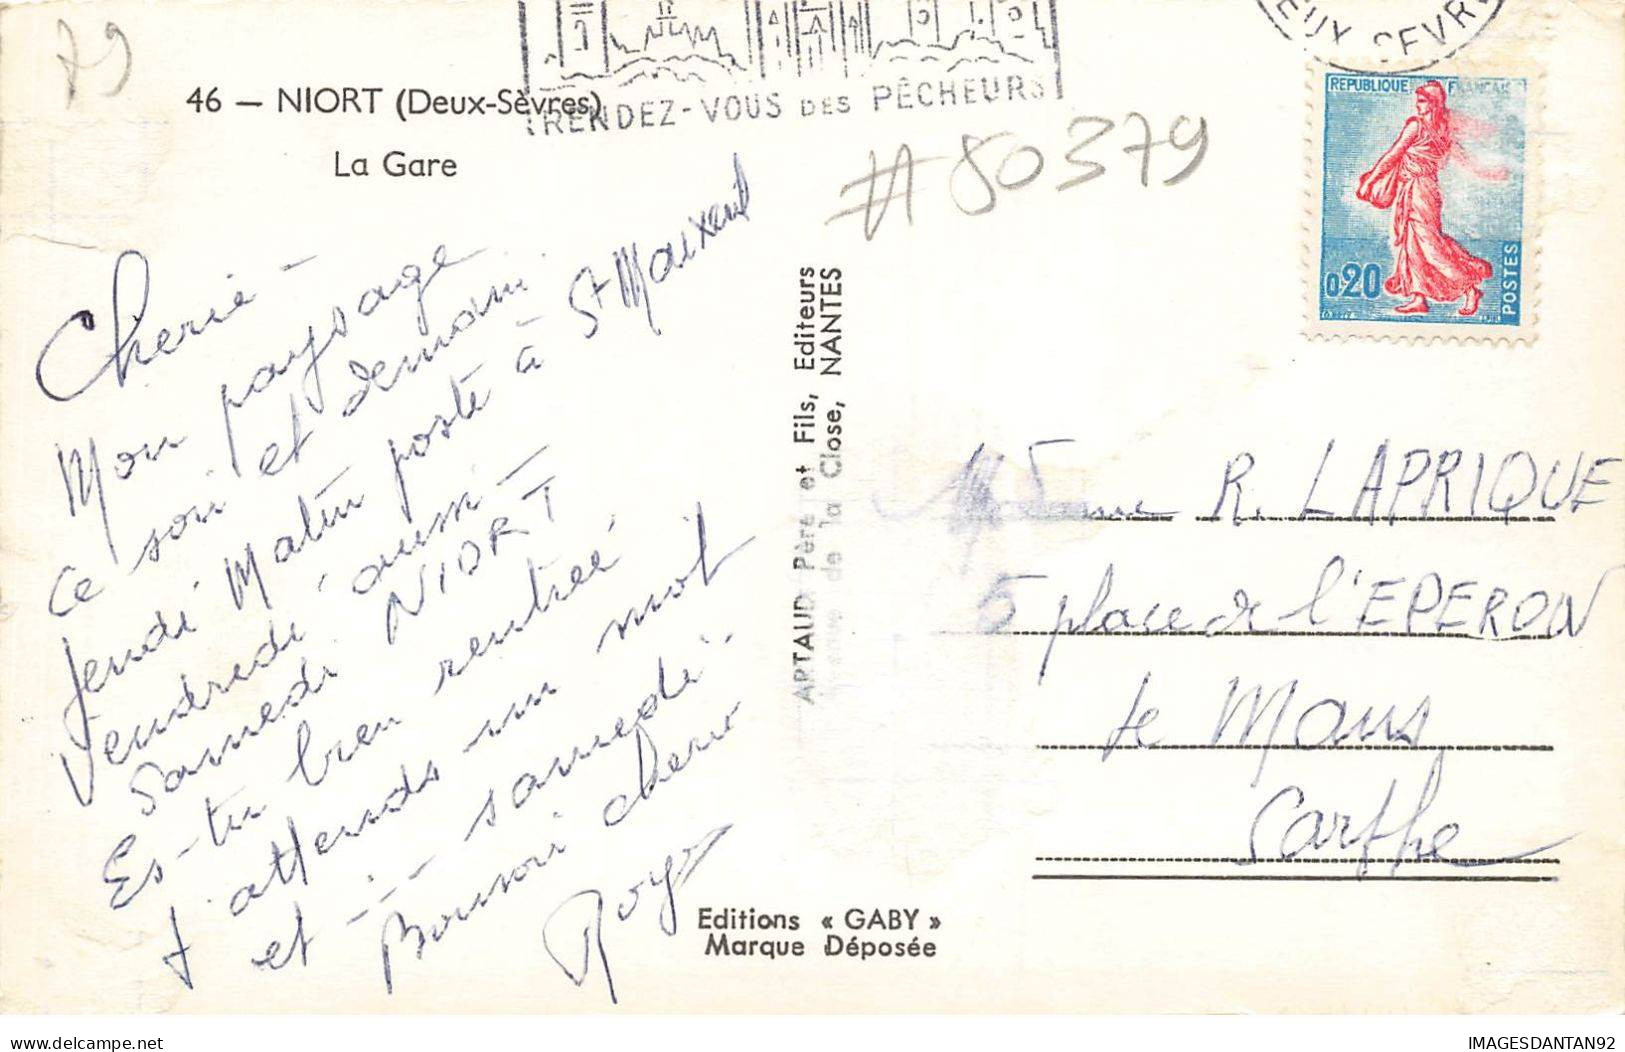 79
46 — NIORT (Deux-Sèvres)
La Gare
RENDEZ-VOUS DES PÊCHEURS
DEUX SEVRES
#80379
REPUBLIQUE FRANCAISE
0,20
POSTES
Cherie -
Mon paysage
ce soir et demain.
Jeudi Matin poste à St Maixent
Vendredi aussi -
Samedi NIORT
Es-tu bien rentrée
J'attends un mot
et --- samedi.
Bonsoir cherie
Roger
ARTAUD Père et Fils, Editeurs
de la Close, NANTES
Madame R. LAPRIQUE
5 place de l'EPERON
Le Mans
Sarthe
Editions « GABY »
Marque Déposée
IMAGESDANTAN92
delcampe.net